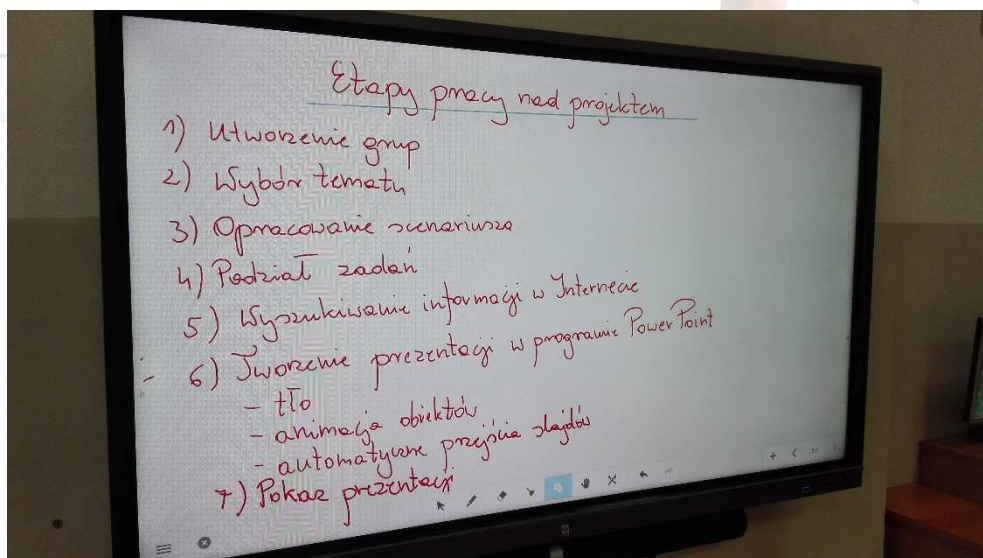 Etapy pracy nad projektem
1) Utworzenie grup
2) Wybór tematu
3) Opracowanie scenariusza
4) Podział zadań
5) Wyszukiwanie informacji w Internecie
6) Tworzenie prezentacji w programie Power Point
- tło
- animacja obiektów
- automatyczne przejścia slajdów
7) Pokaz prezentacji